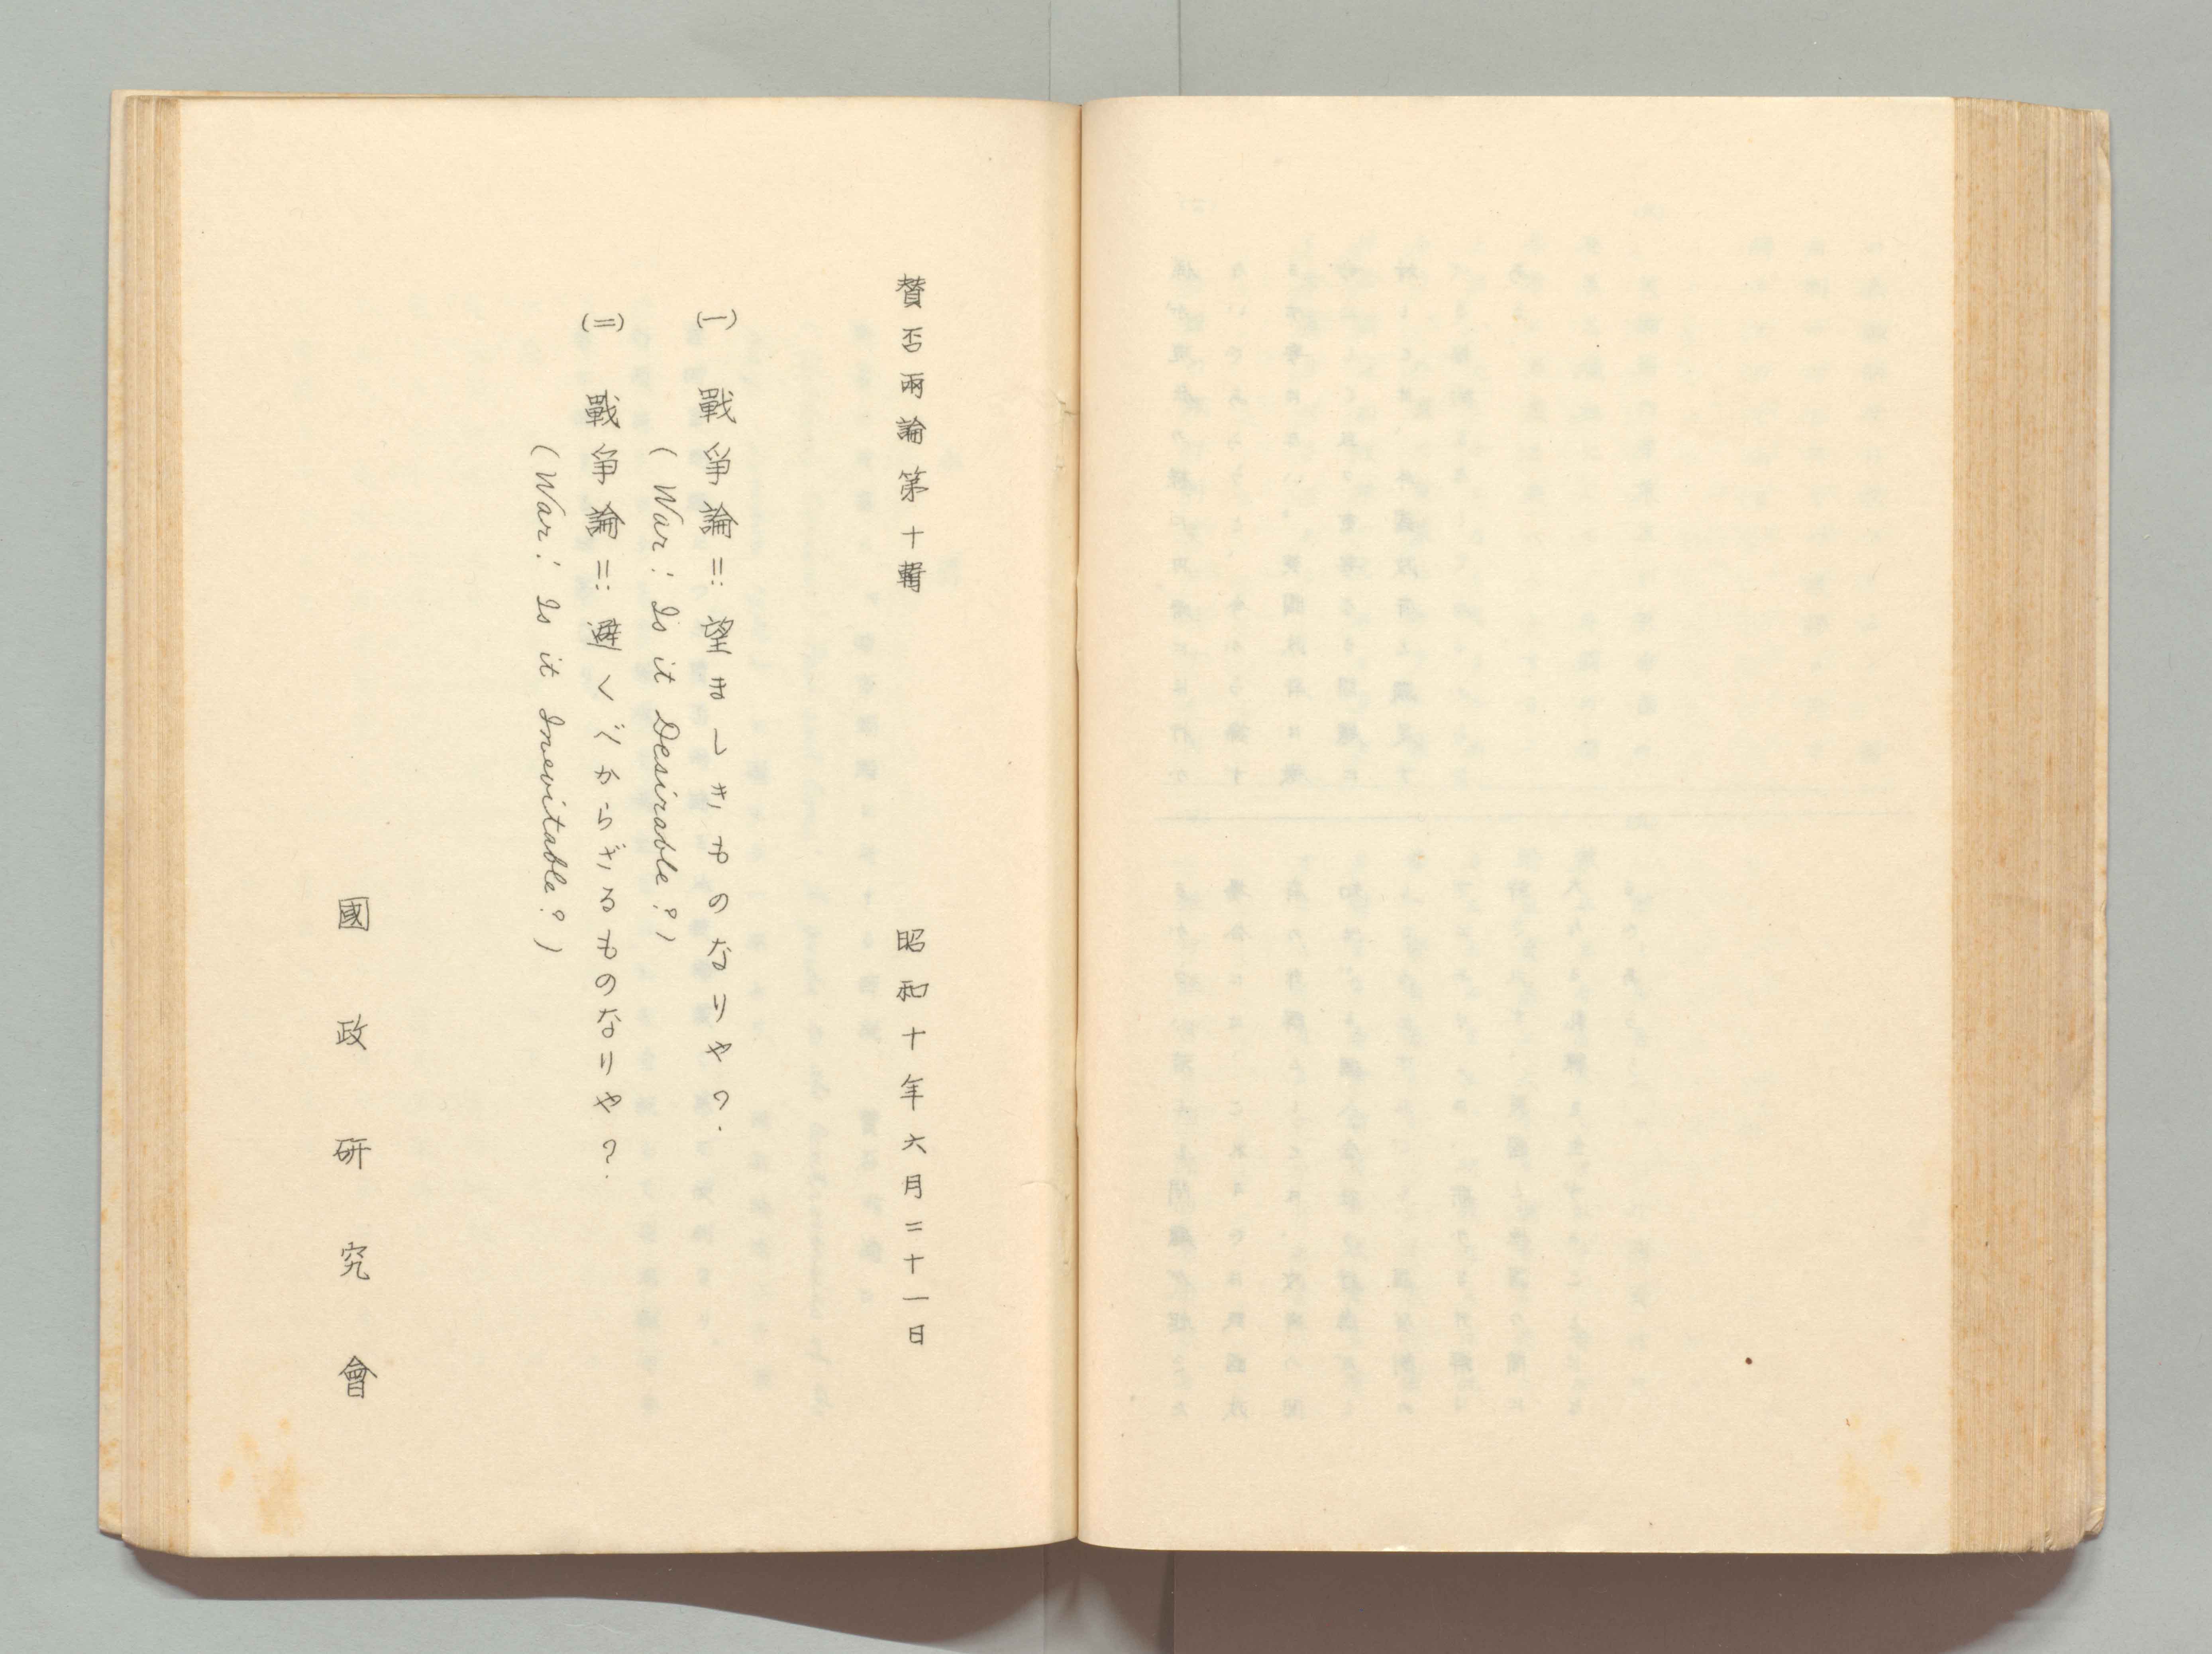 賛否兩論第十輯　昭和十年六月二十一日
(一)　戰爭論!!望ましきものなりや?
(War: Is it Desirable?)
(二)　戰爭論!!避くべからざるものなりや?
(War: Is it Inevitable?)
國政研究會